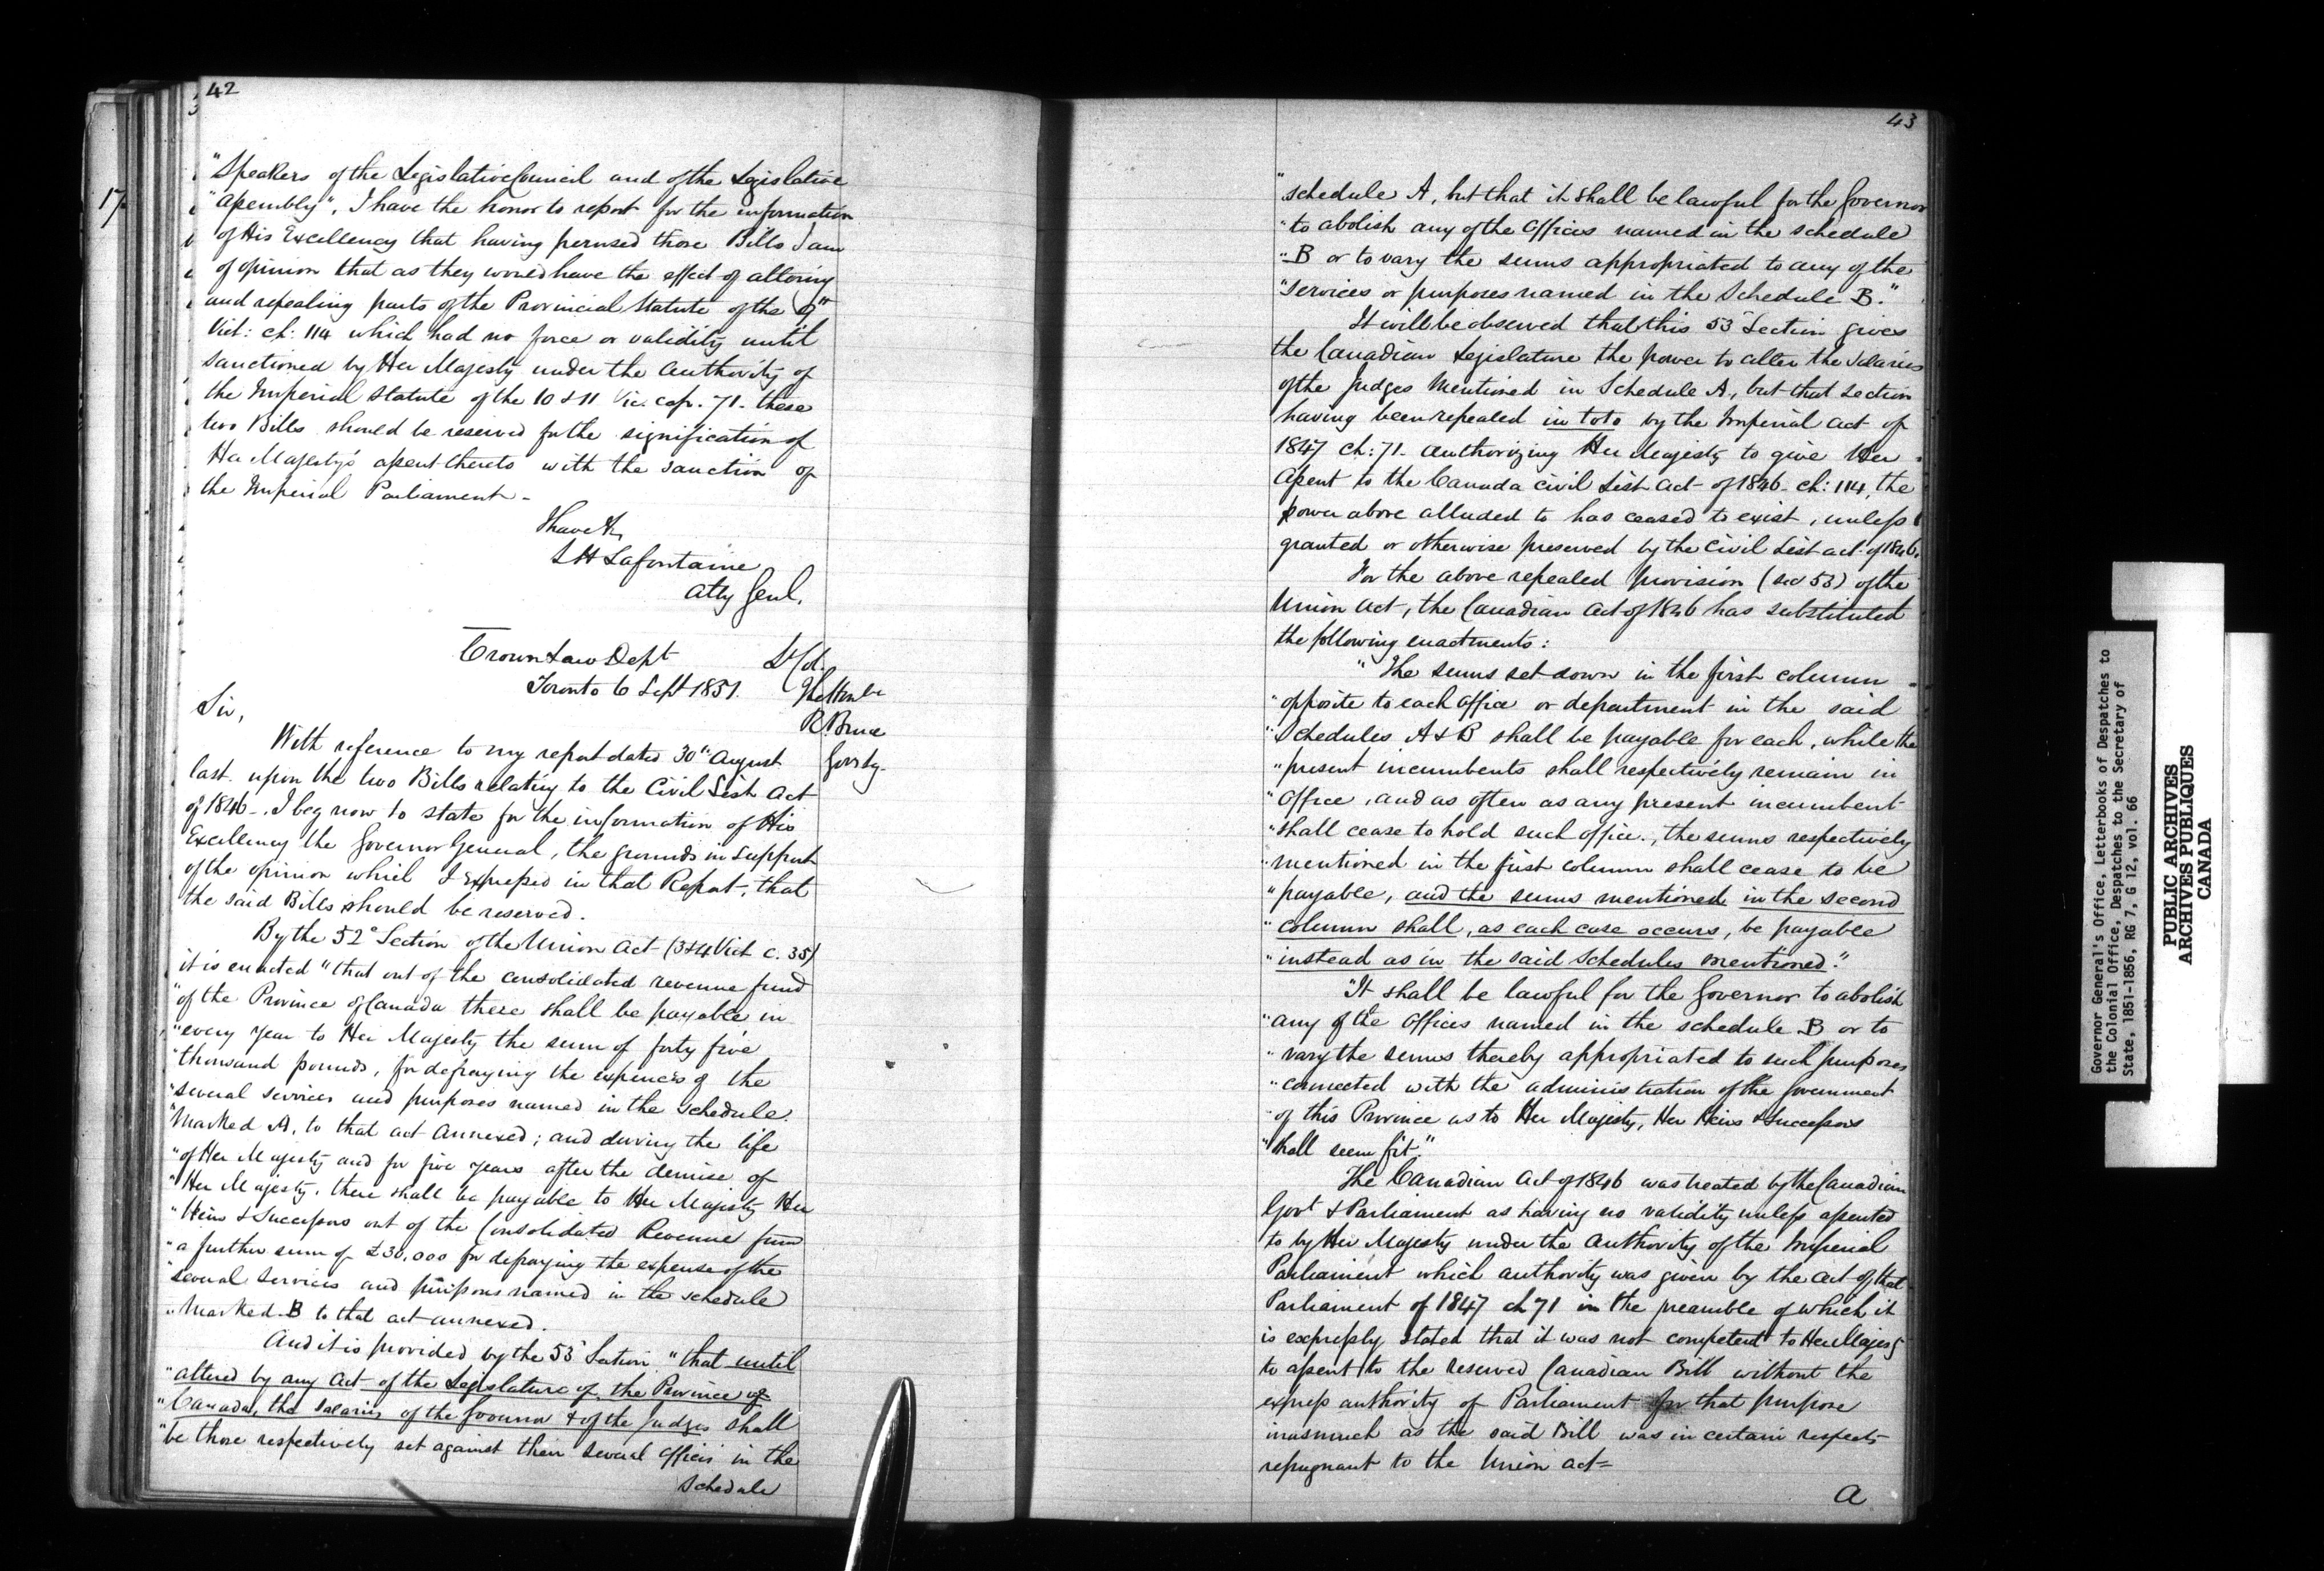 42
"Speakers of the Legislative Council and of the Legislative
"Assembly", I have the honor to report for the information
of His Excellency that having perused those Bills I am
of opinion that as they would have the effect of altering
and repealing parts of the Provincial Statute of the 9th
Vict: ch: 114 which had no force or validity until
sanctioned by Her Majesty under the authority of
the Imperial Statute of the 10 & 11 Vic. cap. 71. these
two Bills should be reserved for the signification of
Her Majesty's assent thereto with the sanction of
the Imperial Parliament -
I have &c
L H Lafontaine
Atty Genl.
Crown Law Dept
Toronto 6 Sept 1851.
Lt Col.
The Honble
R. Bruce
Gov Sy.
Sir,
With reference to my report dated 30th August
last upon the two Bills relating to the Civil List Act
of 1846 - I beg now to state for the information of His
Excellency the Governor General, the grounds in support
of the opinion which I expressed in that Report, that
the said Bills should be reserved.
By the 52d Section of the Union Act (3 & 4 Vict c. 35)
it is enacted "that out of the consolidated revenue fund
"of the Province of Canada there shall be payable in
"every year to Her Majesty the sum of forty five
"thousand pounds, for defraying the expences of the
"several services and purposes named in the schedule
"marked A, to that act annexed; and during the life
"of Her Majesty and for five years after the demise of
"Her Majesty, there shall be payable to Her Majesty Her
"Heirs & Successors out of the Consolidated Revenue fund
"a further sum of £30,000 for defraying the expense of the
"several services and purposes named in the schedule
"marked B to that act annexed.
And it is provided by the 53d Section "that until
"altered by any act of the Legislature of the Province of
"Canada, the salaries of the Governor & of the Judges shall
"be those respectively set against their several offices in the
schedule
43
"schedule A, but that it shall be lawful for the Governor
"to abolish any of the offices named in the schedule
"B or to vary the sums appropriated to any of the
"services or purposes named in the Schedule B."
It will be observed that this 53d Section gives
the Canadian Legislature the power to alter the salaries
of the Judges mentioned in Schedule A, but that section
having been repealed in toto by the Imperial Act of
1847 ch: 71 - authorizing Her Majesty to give Her
assent to the Canada Civil List Act of 1846 - ch: 114, the
power above alluded to has ceased to exist, unless
granted or otherwise preserved by the Civil List act of 1846.
For the above repealed provision (sec 53) of the
Union Act, the Canadian Act of 1846 has substituted
the following enactments:
"The sums set down in the first column
"opposite to each office or department in the said
"Schedules A & B shall be payable for each, while the
"present incumbents shall respectively remain in
"office, and as often as any present incumbent
"shall cease to hold such office, the sums respectively
"mentioned in the first column shall cease to be
"payable, and the sums mentioned in the second
"column shall, as each case occurs, be payable
"instead as in the said schedules mentioned."
"It shall be lawful for the Governor to abolish
"any of the offices named in the schedule B or to
"vary the sums thereby appropriated to such purposes
"connected with the administration of the government
"of this Province as to Her Majesty, Her Heirs & Successors
"shall seem fit."
The Canadian Act of 1846 was treated by the Canadian
Govt & Parliament as having no validity unless assented
to by Her Majesty under the authority of the Imperial
Parliament which authority was given by the act of that
Parliament of 1847 ch 71 in the preamble of which it
is expressly stated that it was not competent to Her Majesty
to assent to the reserved Canadian Bill without the
express authority of Parliament for that purpose
inasmuch as the said Bill was in certain respects
repugnant to the Union Act =
A
17
Governor General's Office, Letterbooks of Despatches to
the Colonial Office, Despatches to the Secretary of
State, 1851-1856, RG 7, G 12, vol. 66
PUBLIC ARCHIVES
ARCHIVES PUBLIQUES
CANADA